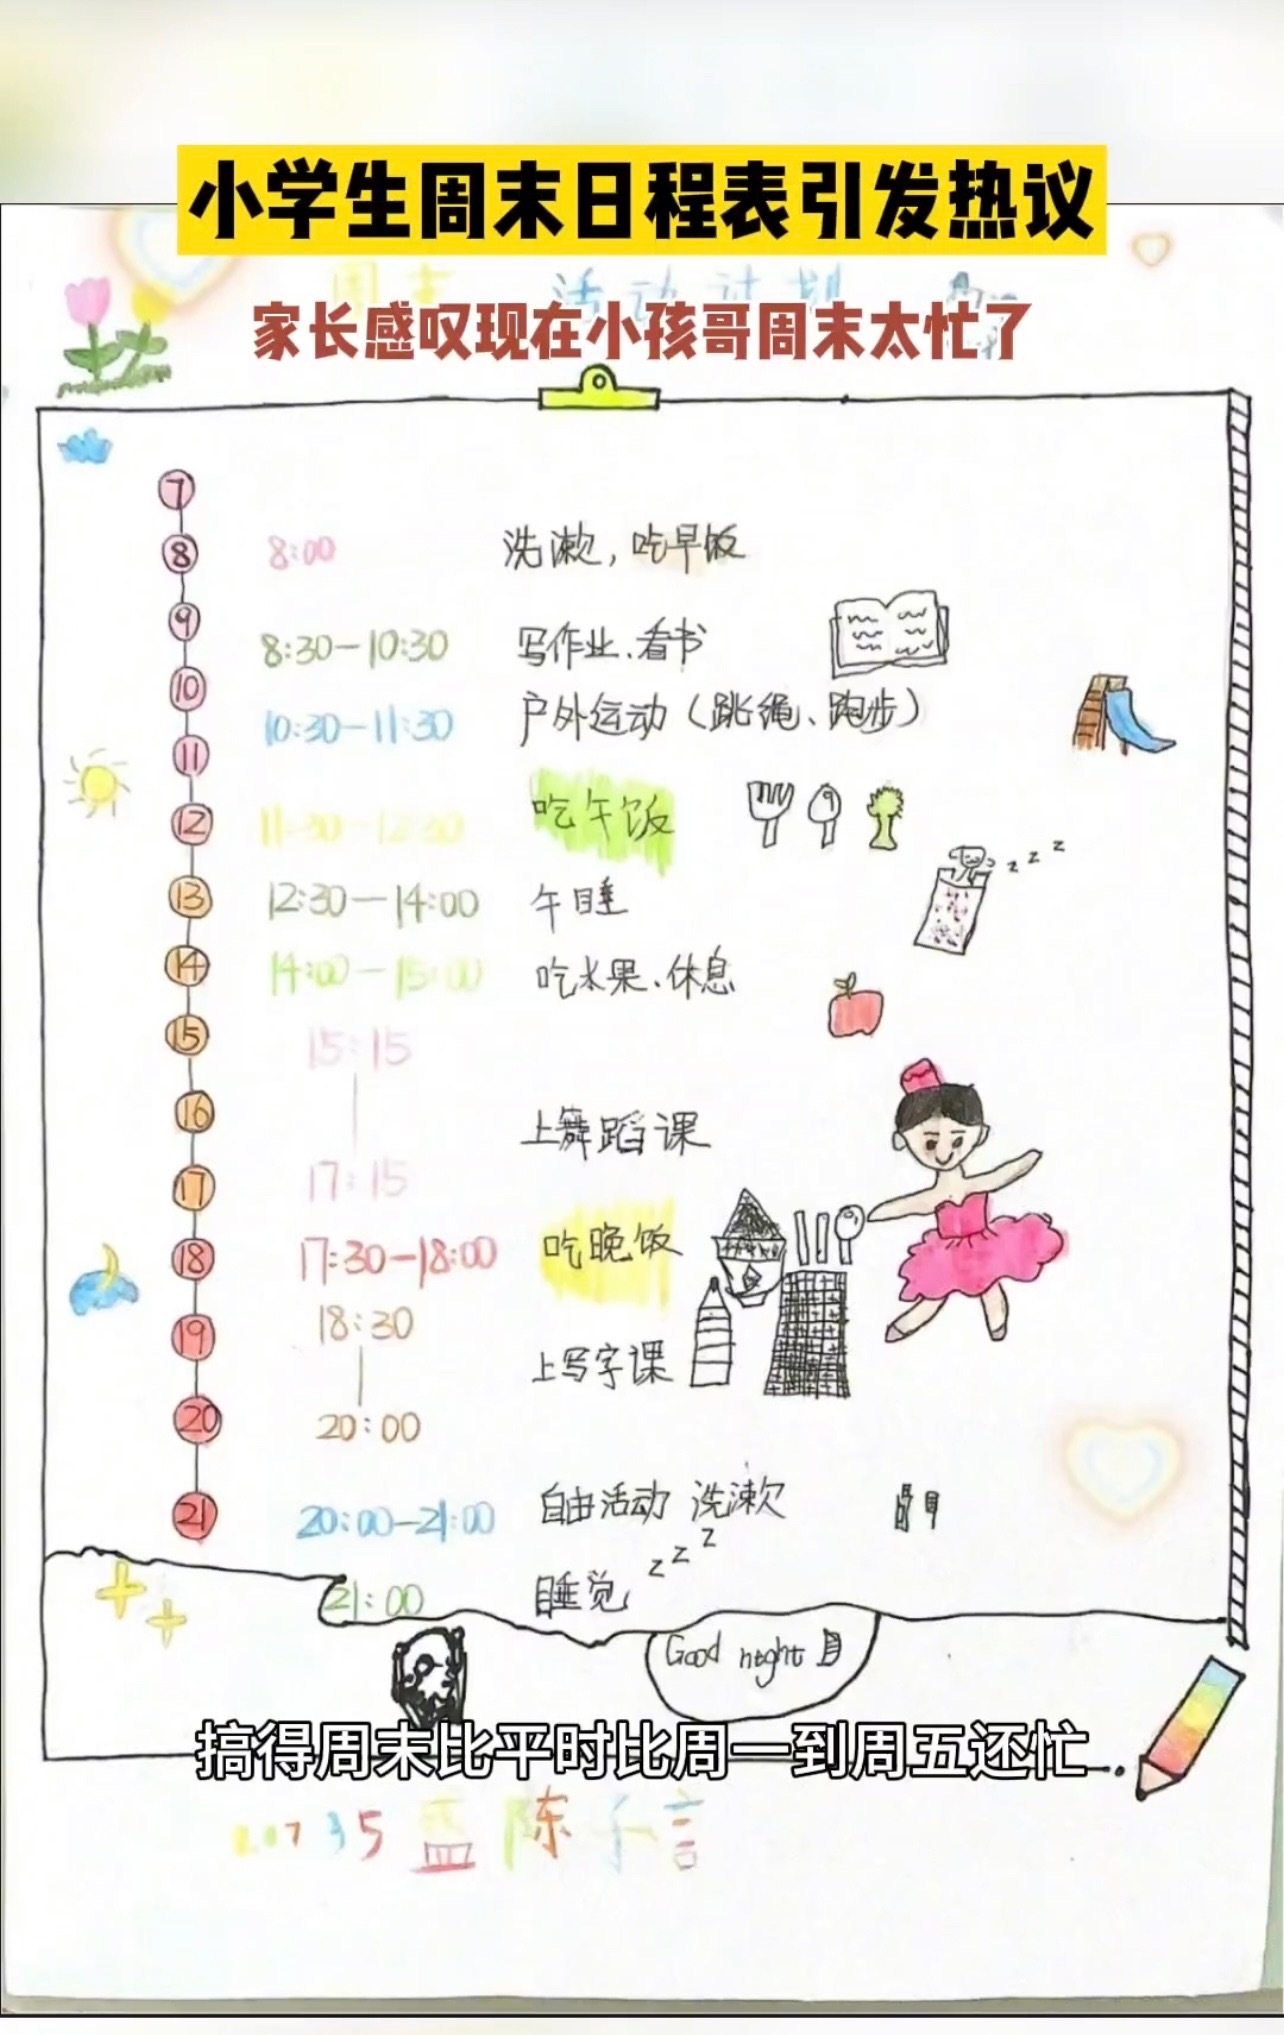 小学生周末日程表引发热议
周末 活动计划
家长感叹现在小孩哥周末太忙了
7
8 8:00 洗漱,吃早饭
9
8:30—10:30 写作业、看书
10
10:30—11:30 户外运动(跳绳、跑步)
11
12 11:30—12:30 吃午饭
13 12:30—14:00 午睡
z z z
14 14:00—15:00 吃水果、休息
15 15:15
16 上舞蹈课
17 17:15
18 17:30—18:00 吃晚饭
19 18:30
上写字课
20 20:00
21 20:00—21:00 自由活动 洗漱
21:00 睡觉 z z z
Good night
搞得周末比平时比周一到周五还忙